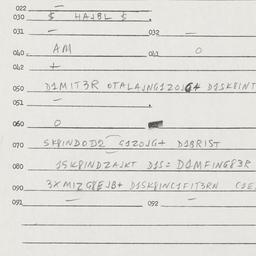 022 —
030 $ HAJBL $
031 — 032 —
040. AM 041 O
042 +
050 D1MIT3R OTALAJNG1ZOJG+ D1SK8INT
051 —
060 O
070 SK8INDOD12 G1ZOJG+ D1BRIST
080 1SK8INDZAJKT D1S= D1MFING83R
090 3XMIZG8EJB+ D1SK8INC1FIT3RN C1E
091 — 092 —